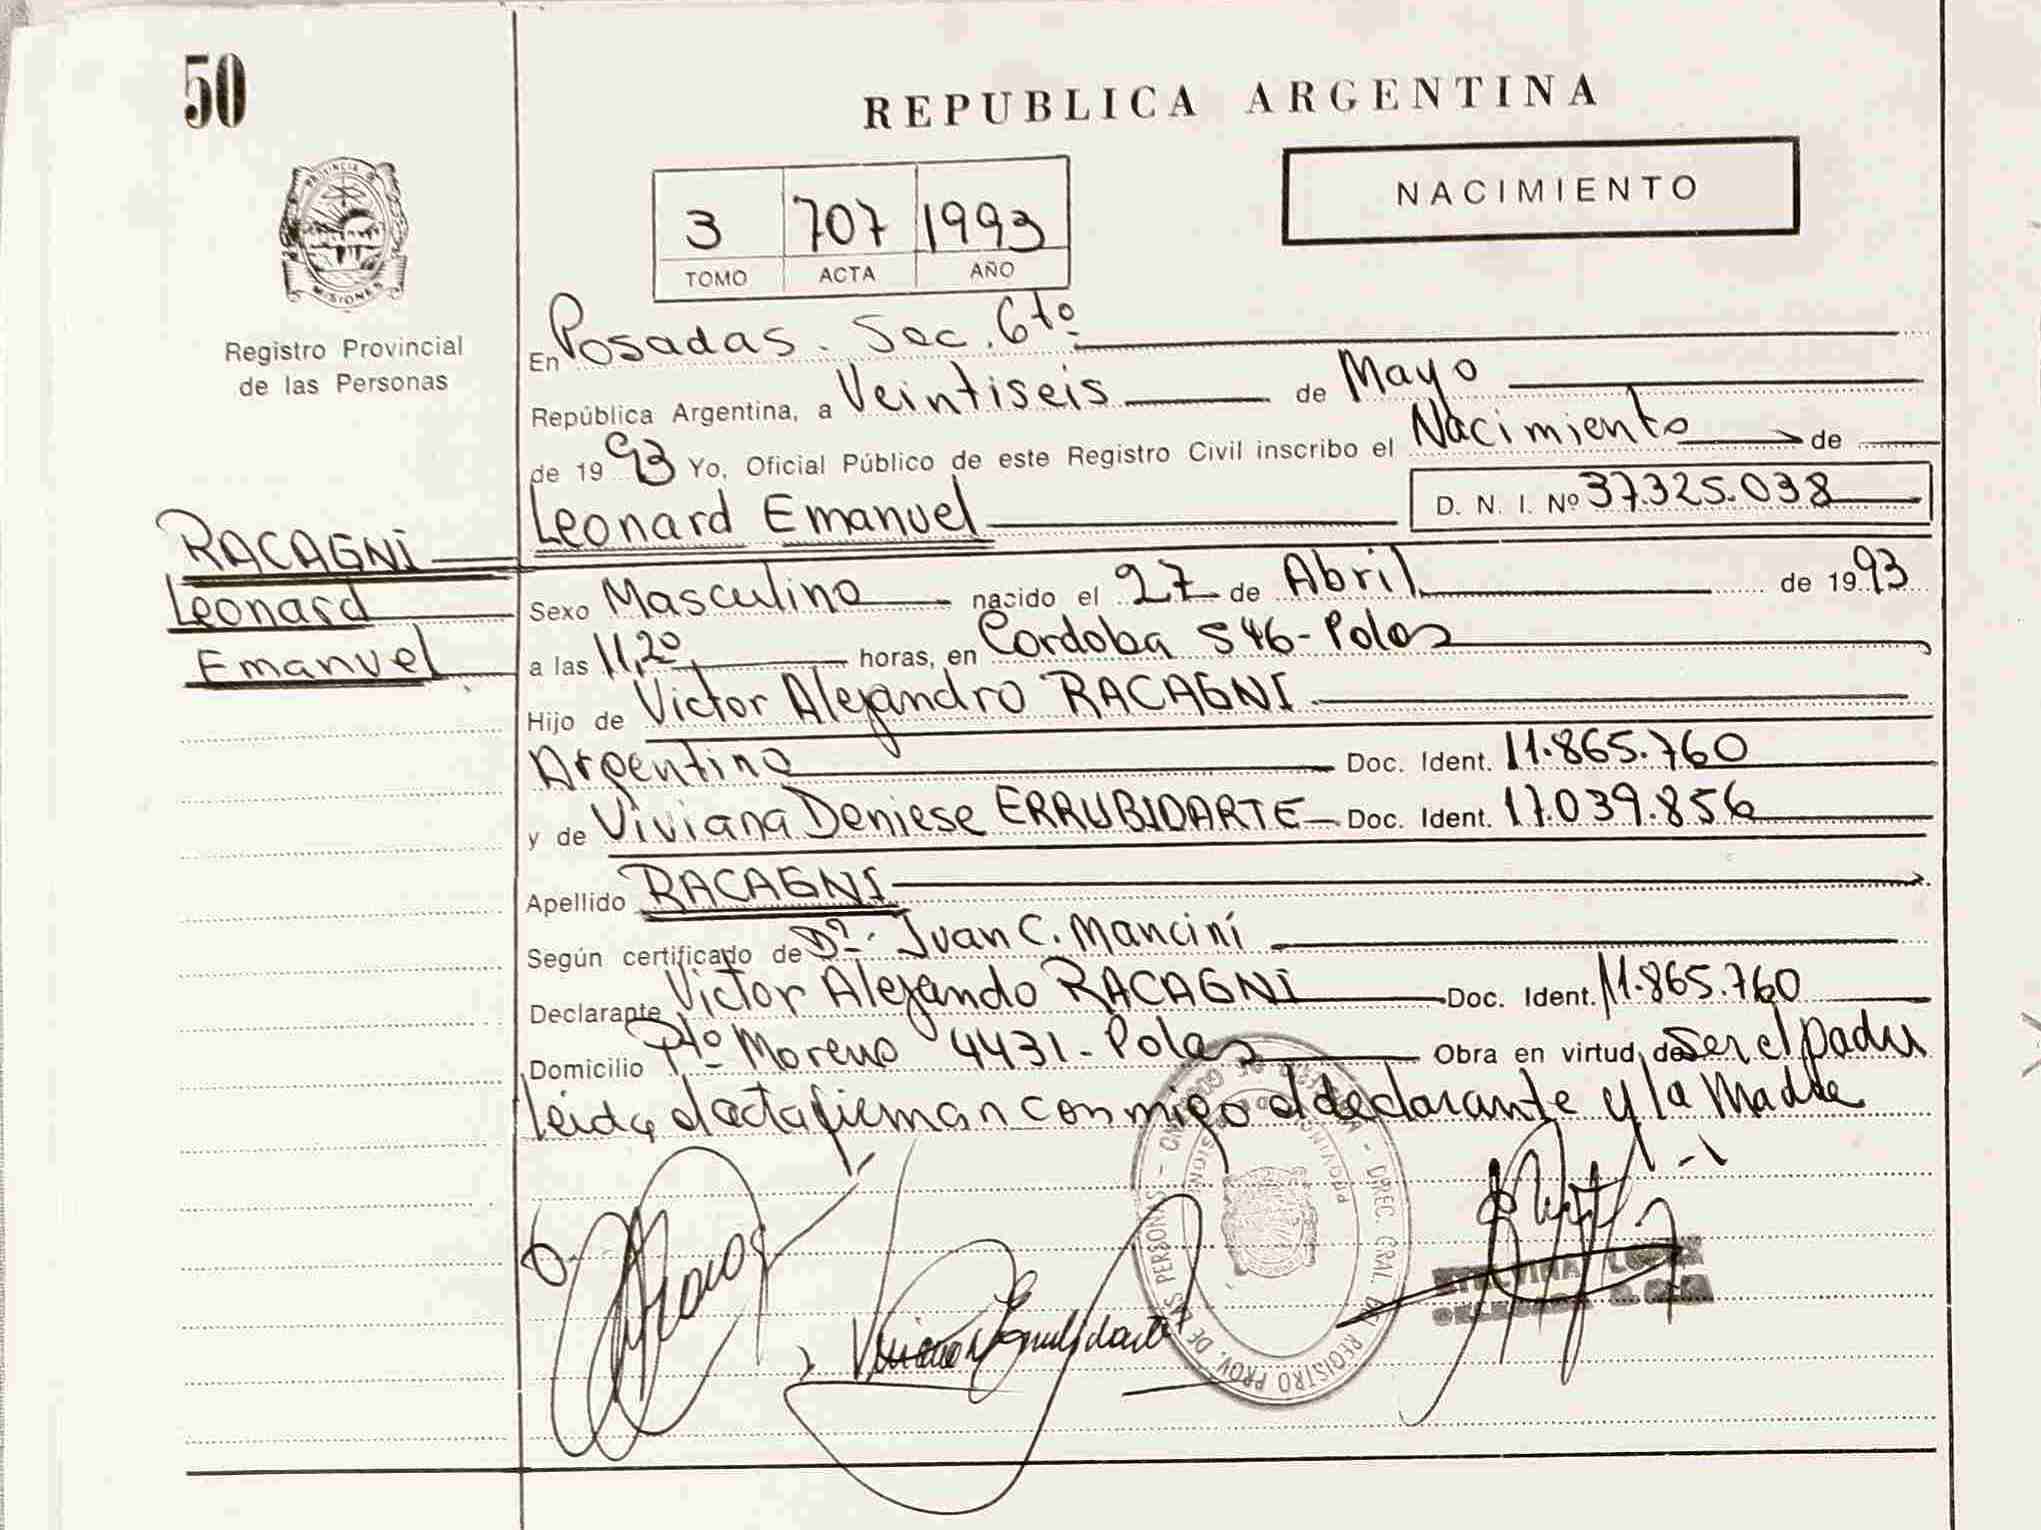 50
REPUBLICA ARGENTINA
NACIMIENTO
3 707 1993
TOMO ACTA AÑO
PROVINCIA DE MISIONES
Registro Provincial
de las Personas
En Posadas. Sec. 6to
República Argentina, a Veintiseis de Mayo
de 1993 Yo, Oficial Público de este Registro Civil inscribo el Nacimiento de
Leonard Emanuel D. N. I. Nº 37.325.038
RACAGNI
Leonard
Emanuel
Sexo Masculino nacido el 27 de Abril de 1993
a las 11,20 horas, en Cordoba 546-Pdas
Hijo de Victor Alejandro RACAGNI
Argentino Doc. Ident. 11.865.760
y de Viviana Deniese ERRUBIDARTE Doc. Ident. 17.039.856
Apellido RACAGNI
Según certificado de Dr. Juan C. Mancini
Declarante Victor Alejando RACAGNI Doc. Ident. 11.865.760
Domicilio Pto Moreno 4431-Pdas Obra en virtud de ser el padre
leida el acta firman conmigo el declarante y la Madre
DIREC. GRAL. DEL REGISTRO PROV. DE LAS PERSONAS